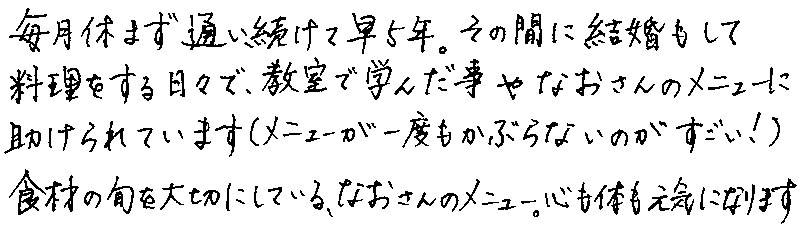 毎月休まず通い続けて早5年。その間に結婚もして
料理をする日々で、教室で学んだ事やなおさんのメニューに
助けられています(メニューが一度もかぶらないのがすごい!)
食材の旬を大切にしている、なおさんのメニュー。心も体も元気になります